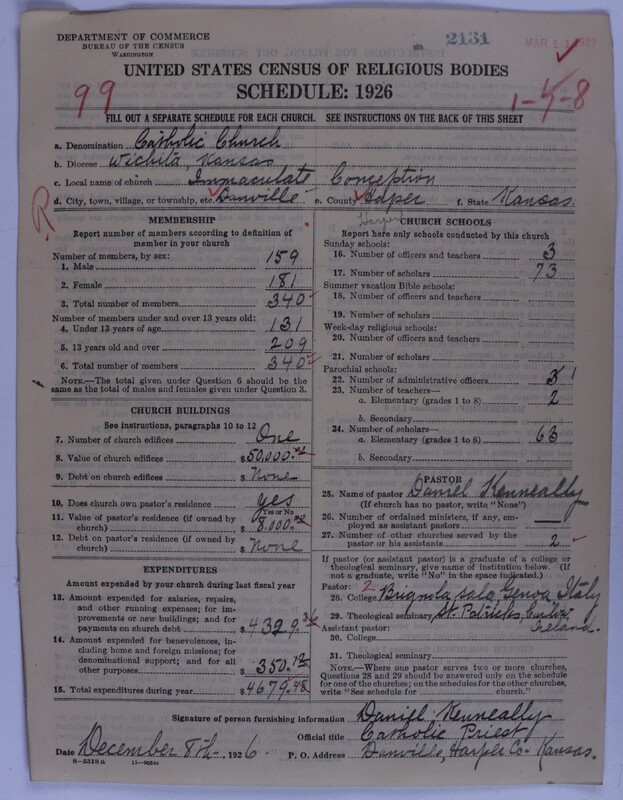 DEPARTMENT OF COMMERCE
BUREAU OF THE CENSUS
WASHINGTON
2131
MAR 1 1927
UNITED STATES CENSUS OF RELIGIOUS BODIES
SCHEDULE: 1926
99
1-5-8
FILL OUT A SEPARATE SCHEDULE FOR EACH CHURCH. SEE INSTRUCTIONS ON THE BACK OF THIS SHEET
a. Denomination Catholic Church
b. Diocese Wichita, Kansas
c. Local name of church Immaculate Conception
d. City, town, village, or township, etc. Danville e. County Haper f. State Kansas
Harper
R
MEMBERSHIP
Report number of members according to definition of member in your church
Number of members, by sex:
1. Male 159
2. Female 181
3. Total number of members 340
Number of members under and over 13 years old:
4. Under 13 years of age 131
5. 13 years old and over 209
6. Total number of members 340
NOTE.—The total given under Question 6 should be the same as the total of males and females given under Question 3.
CHURCH BUILDINGS
See instructions, paragraphs 10 to 12
7. Number of church edifices One
8. Value of church edifices $50,000.
9. Debt on church edifices $ None
10. Does church own pastor's residence yes
Yes or No
11. Value of pastor's residence (if owned by church) $ 8,000.
12. Debt on pastor's residence (if owned by church) $ None
EXPENDITURES
Amount expended by your church during last fiscal year
13. Amount expended for salaries, repairs, and other running expenses; for improvements or new buildings; and for payments on church debt $ 4329.36
14. Amount expended for benevolences, including home and foreign missions; for denominational support; and for all other purposes $ 350.12
15. Total expenditures during year $ 4679.48
CHURCH SCHOOLS
Report here only schools conducted by this church
Sunday schools:
16. Number of officers and teachers 3
17. Number of scholars 73
Summer vacation Bible schools:
18. Number of officers and teachers
19. Number of scholars
Week-day religious schools:
20. Number of officers and teachers
21. Number of scholars
Parochial schools:
22. Number of administrative officers 3 1
23. Number of teachers—
a. Elementary (grades 1 to 8) 2
b. Secondary
24. Number of scholars—
a. Elementary (grades 1 to 8) 63
b. Secondary
PASTOR
25. Name of pastor Daniel Kenneally
(If church has no pastor, write "None")
26. Number of ordained ministers, if any, employed as assistant pastors —
27. Number of other churches served by the pastor or his assistants 2
If pastor (or assistant pastor) is a graduate of a college or theological seminary, give name of institution below. (If not a graduate, write "No" in the space indicated.)
Pastor: 2
28. College Brignola sala Genoa Italy
29. Theological seminary St. Patricks, Carlow Ireland.
Assistant pastor:
30. College
31. Theological seminary
NOTE.—Where one pastor serves two or more churches, Questions 28 and 29 should be answered only on the schedule for one of the churches; on the schedules for the other churches, write "See schedule for church."
Signature of person furnishing information Daniel Kenneally
Official title Catholic Priest
Date December 8th, 1926. P. O. Address Danville, Harper Co- Kansas.
8-5318a 11-9034